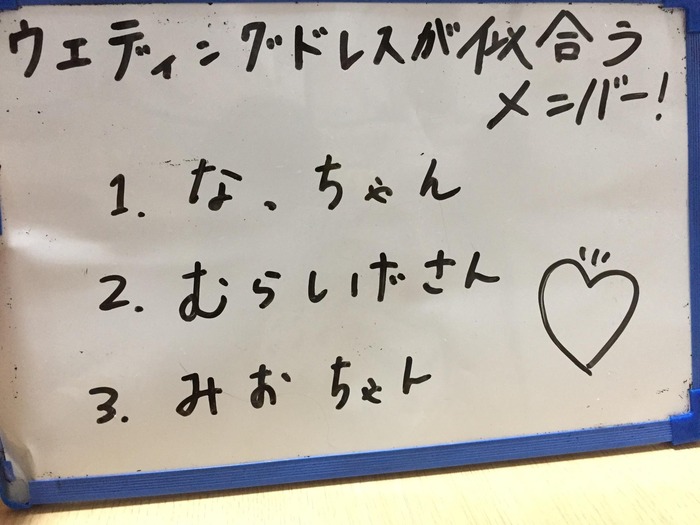 ウエディングドレスが似合う
メンバー!
1. なぁちゃん
2. むらしげさん
3. みおちゃん